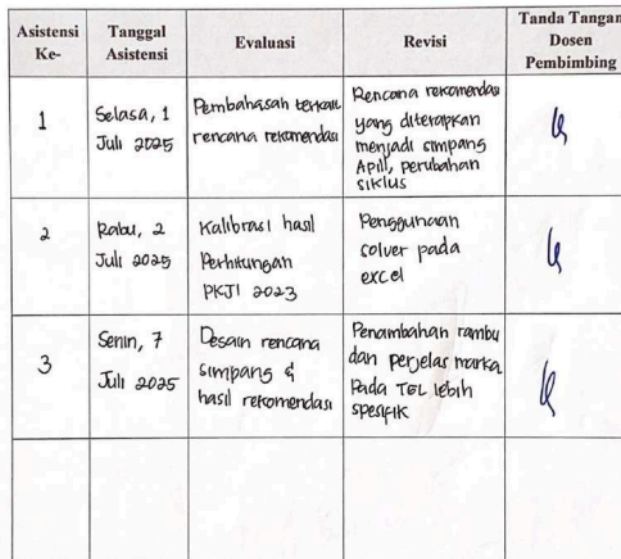 Asistensi Ke-
Tanggal Asistensi
Evaluasi
Revisi
Tanda Tangan Dosen Pembimbing
1
Selasa, 1
Juli 2025
Pembahasan terkait
rencana rekomendasi
Rencana rekomendasi
yang diterapkan
menjadi simpang
Apill, perubahan
siklus
2
Rabu, 2
Juli 2025
Kalibrasi hasil
Perhitungan
PKJI 2023
Penggunaan
solver pada
excel
3
Senin, 7
Juli 2025
Desain rencana
simpang &
hasil rekomendasi
Penambahan rambu
dan perjelas marka
Pada TEL lebih
spesifik